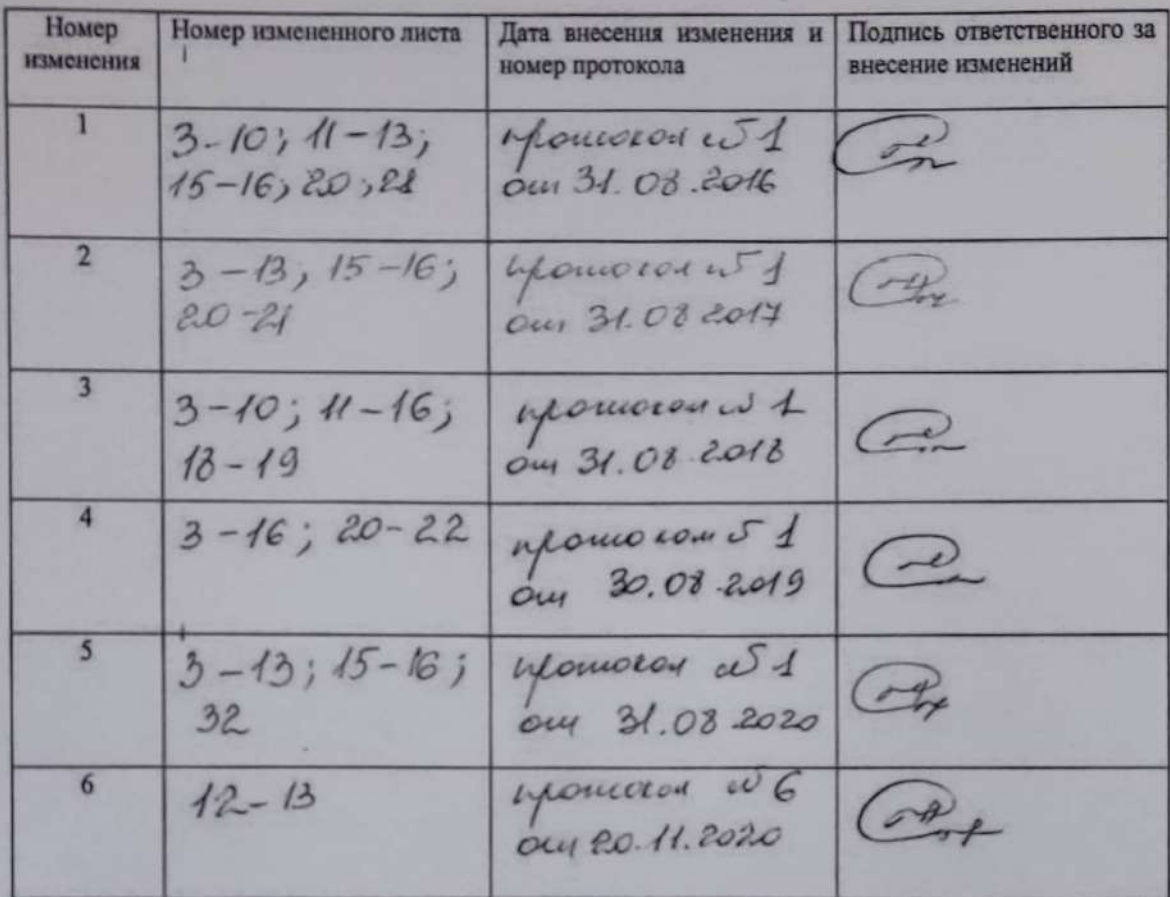 Номер изменения
Номер измененного листа
Дата внесения изменения и номер протокола
Подпись ответственного за внесение изменений
1
3-10; 11-13;
15-16; 20; 21
протокол №1
от 31.08.2016
2
3-13; 15-16;
20-21
протокол №1
от 31.08 2017
3
3-10; 11-16;
18-19
протокол №1
от 31.08.2018
4
3-16; 20-22
протокол №1
от 30.08.2019
5
3-13; 15-16;
32
протокол №1
от 31.08 2020
6
12-13
протокол №6
от 20.11.2020